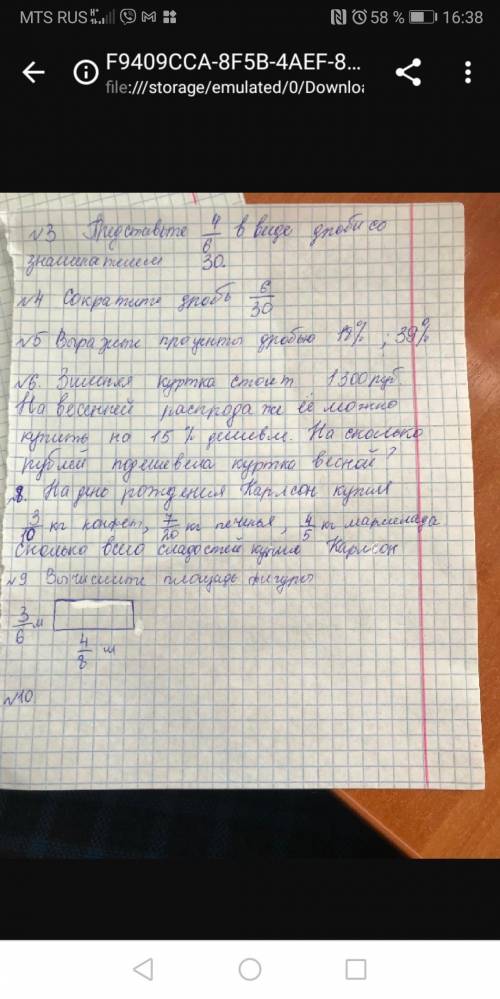 MTS RUS 58 % 16:38
F9409CCA-8F5B-4AEF-8...
file:///storage/emulated/0/Downloa
№3 Представьте 4/6 в виде дроби со
знаменателем 30.
№4 Сократите дробь 6/30
№5 Выразите проценты дробью 18% ; 39%
№6. Зимняя куртка стоит 1300 руб
На весенней распродаже её можно
купить на 15 % дешевле. На сколько
рублей подешевела куртка весной?
№8. На день рождения Карлсон купил
3/10 кг конфет, 7/20 кг печенья, 4/5 кг мармелада
сколько всего сладостей купил Карлсон
№9 Вычислите площадь фигуры
3/6 м
4/8 м
№10